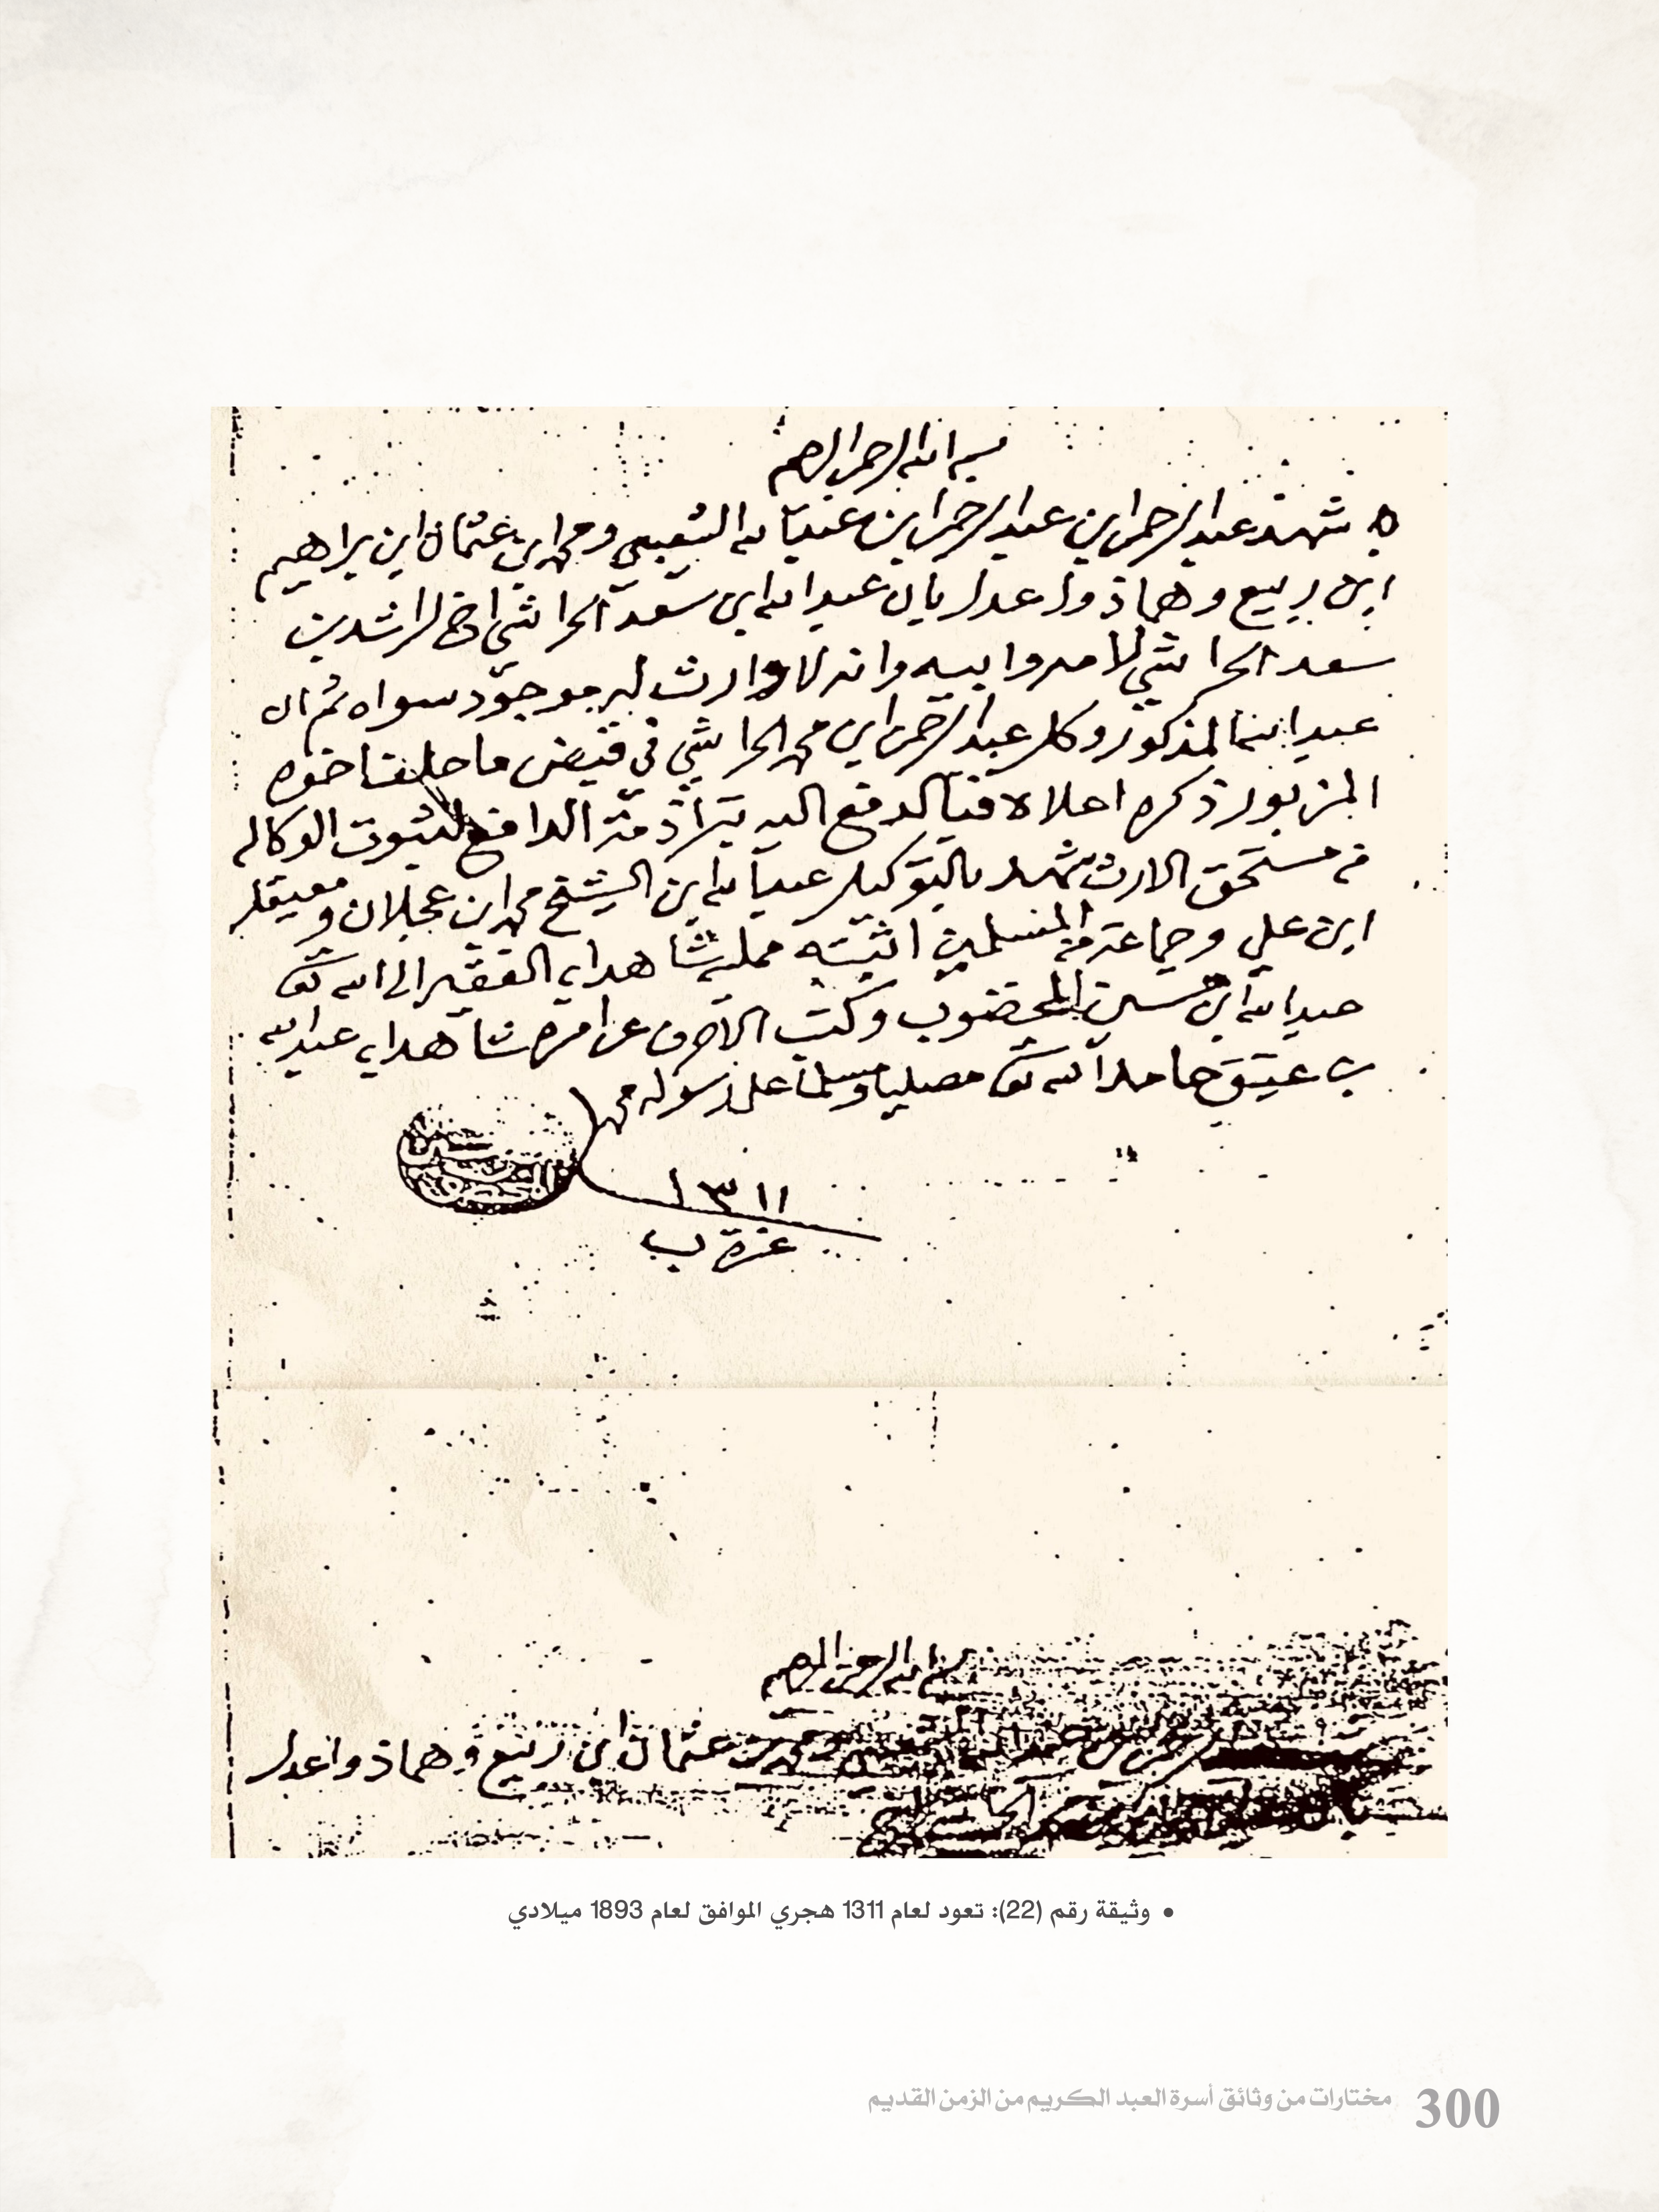 بسم الله الرحمن الرحيم
شهد عبد الرحمن ابن عبد الرحمن ابن عبد الله الشعيبي ومحمد ابن عثمان ابن براهيم
ابن ربيع وهما ذوا عدل بان عبد الله ابن سعد الحراشي اخ لراشد بن
سعد الحراشي لامه وابيه وانه لا وارث له موجود سواه ثم ان
عبد الله المذكور وكل عبد الرحمن ابن محمد الحراشي في قبض ما خلف اخوه
المزبور ذكره اعلاه فبالدفع اليه تبرأ ذمة الدافع لثبوت الوكاله
من مستحق الارث شهد بالتوكيل عبد الله ابن الشيخ محمد ابن عجلان ومعيقل
ابن علي وجماعة من المسلمين اثبته ممليه شاهدا به الفقير الى الله تعالى
عبد الله ابن حسين المخضوب وكتب الاحرف عن امره شاهدا به عبد الله
بن عتيق حامدا لله تعالى مصليا ومسلما على رسوله محمد
١٣١١
غرة ب
بسم الله الرحمن الرحيم
عثمان ابن ربيع وهما ذوا عدل
• وثيقة رقم (22): تعود لعام 1311 هجري الموافق لعام 1893 ميلادي
300 مختارات من وثائق أسرة العبد الكريم من الزمن القديم